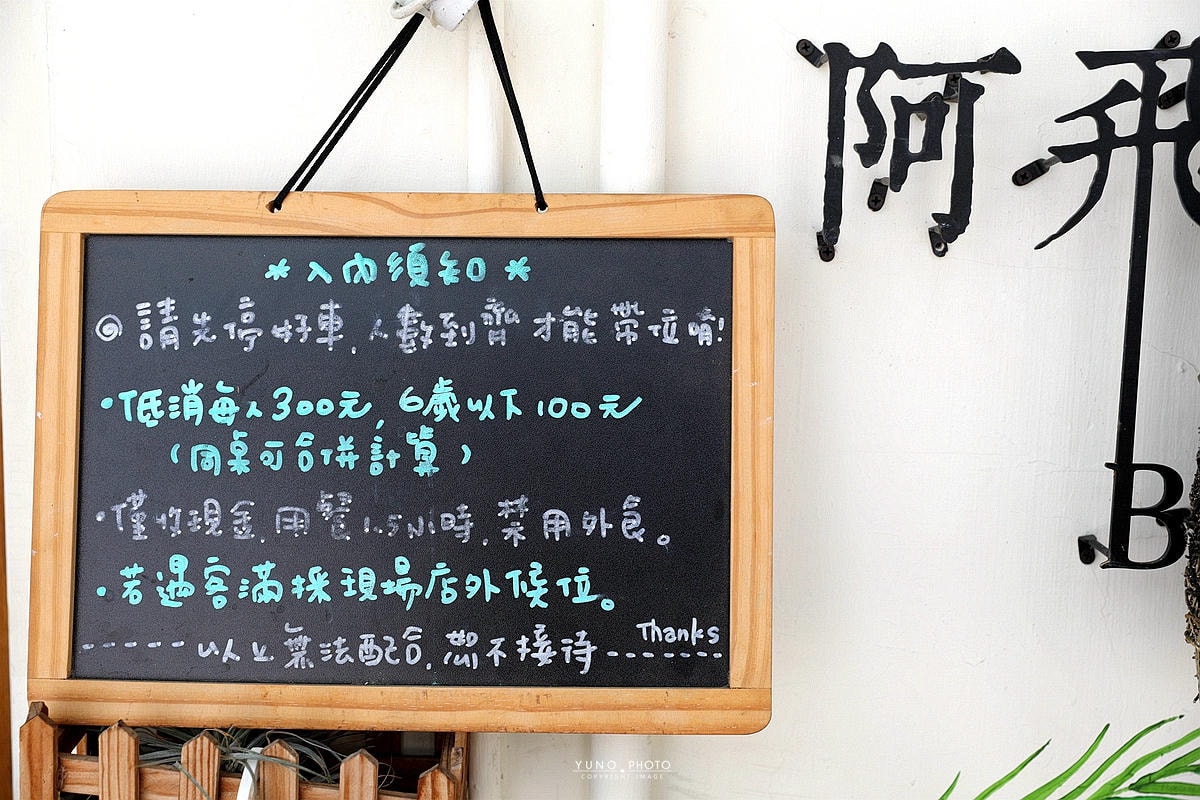 * 入內須知 *
◎ 請先停好車,人數到齊才能帶位唷!
•低消每人300元,6歲以下100元
(同桌可合併計算)
•僅收現金,用餐1.5小時,禁用外食。
•若遇客滿採現場店外候位。
Thanks
-----以上無法配合,恕不接待-------
阿飛
B
YUNO PHOTO
COPYRIGHT IMAGE